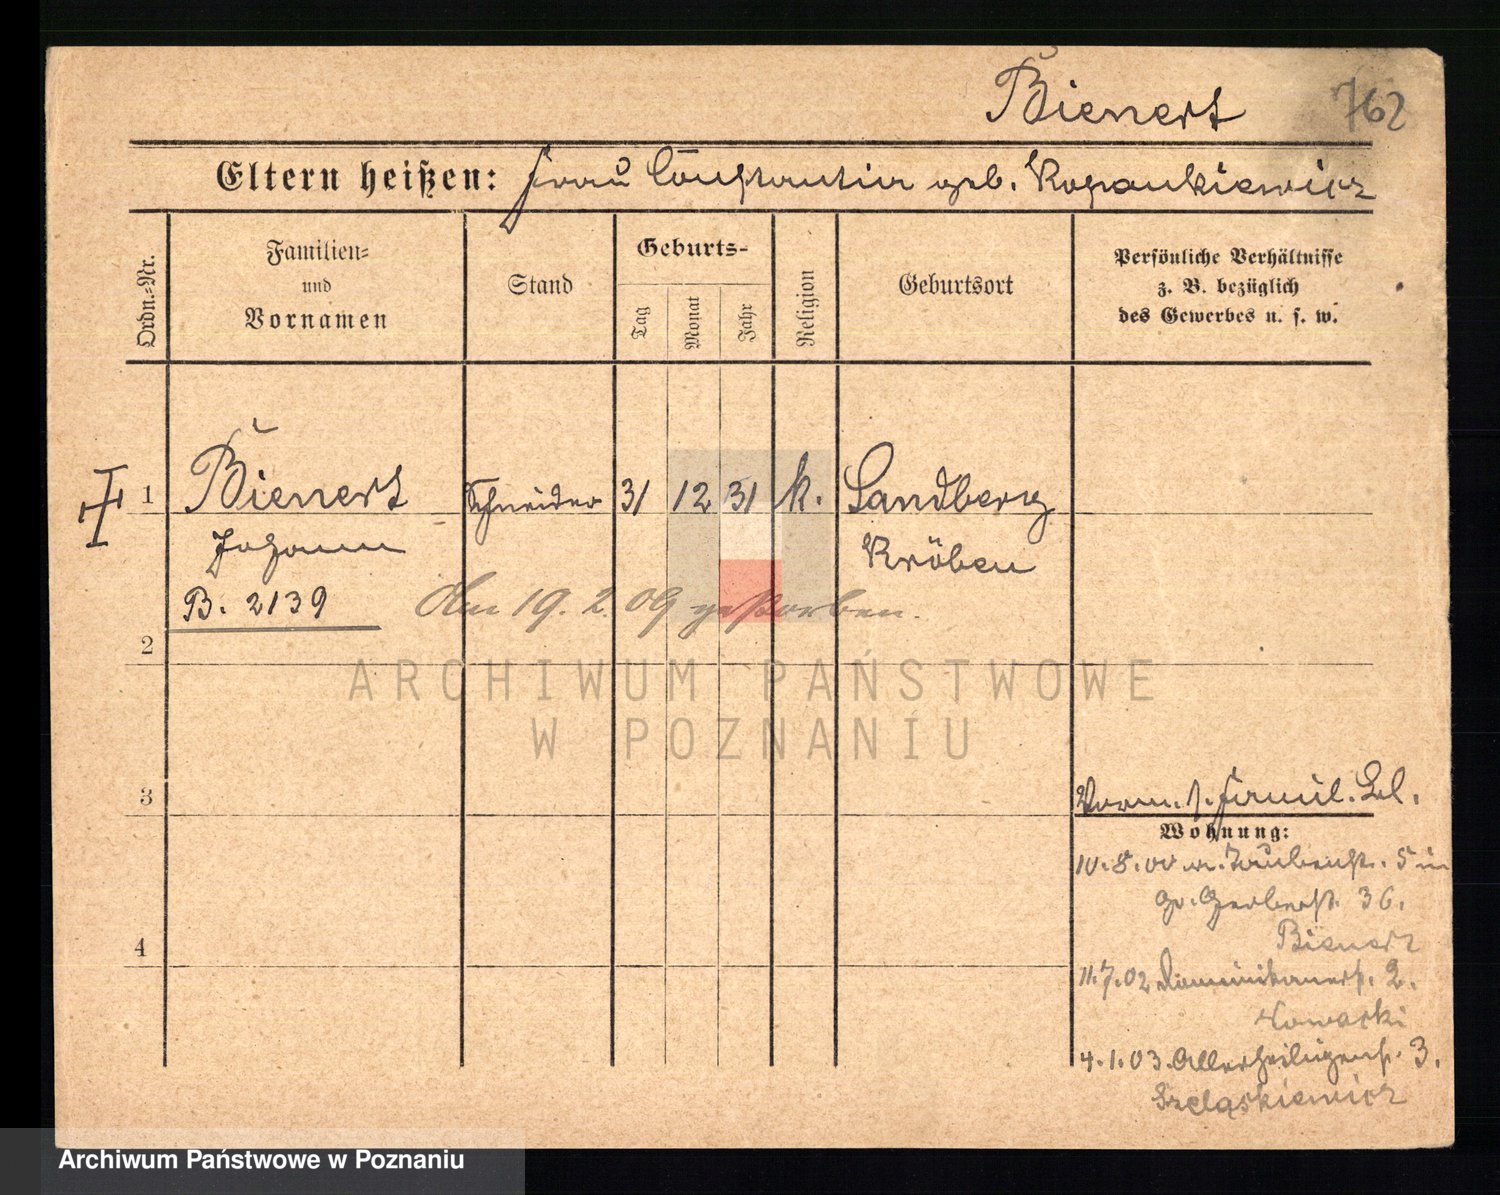 Bienert 762
Eltern heißen: Frau Constantia geb. Kopankiewicz
Ordn.-Nr.
Familien- und Vornamen
Stand
Geburts-
Tag
Monat
Jahr
Religion
Geburtsort
Persönliche Verhältnisse
z. B. bezüglich
des Gewerbes u. s. w.
1 Bienert Schneider 31 12 31 k. Sandberg
Johann Kröben
B. 2139 Am 19. 2. 09 gestorben.
2
3
Verm. s. Famil. Bl.
Wohnung:
10.8.00 v. Taubenstr. 5 in
gr. Gerberstr. 36.
Bienert
4
11.7.02 Dominikanerst. 2.
Nowacki
4.1.03. Allerheiligenst. 3.
Szeląskiewicz
ARCHIWUM PAŃSTWOWE
W POZNANIU
Archiwum Państwowe w Poznaniu